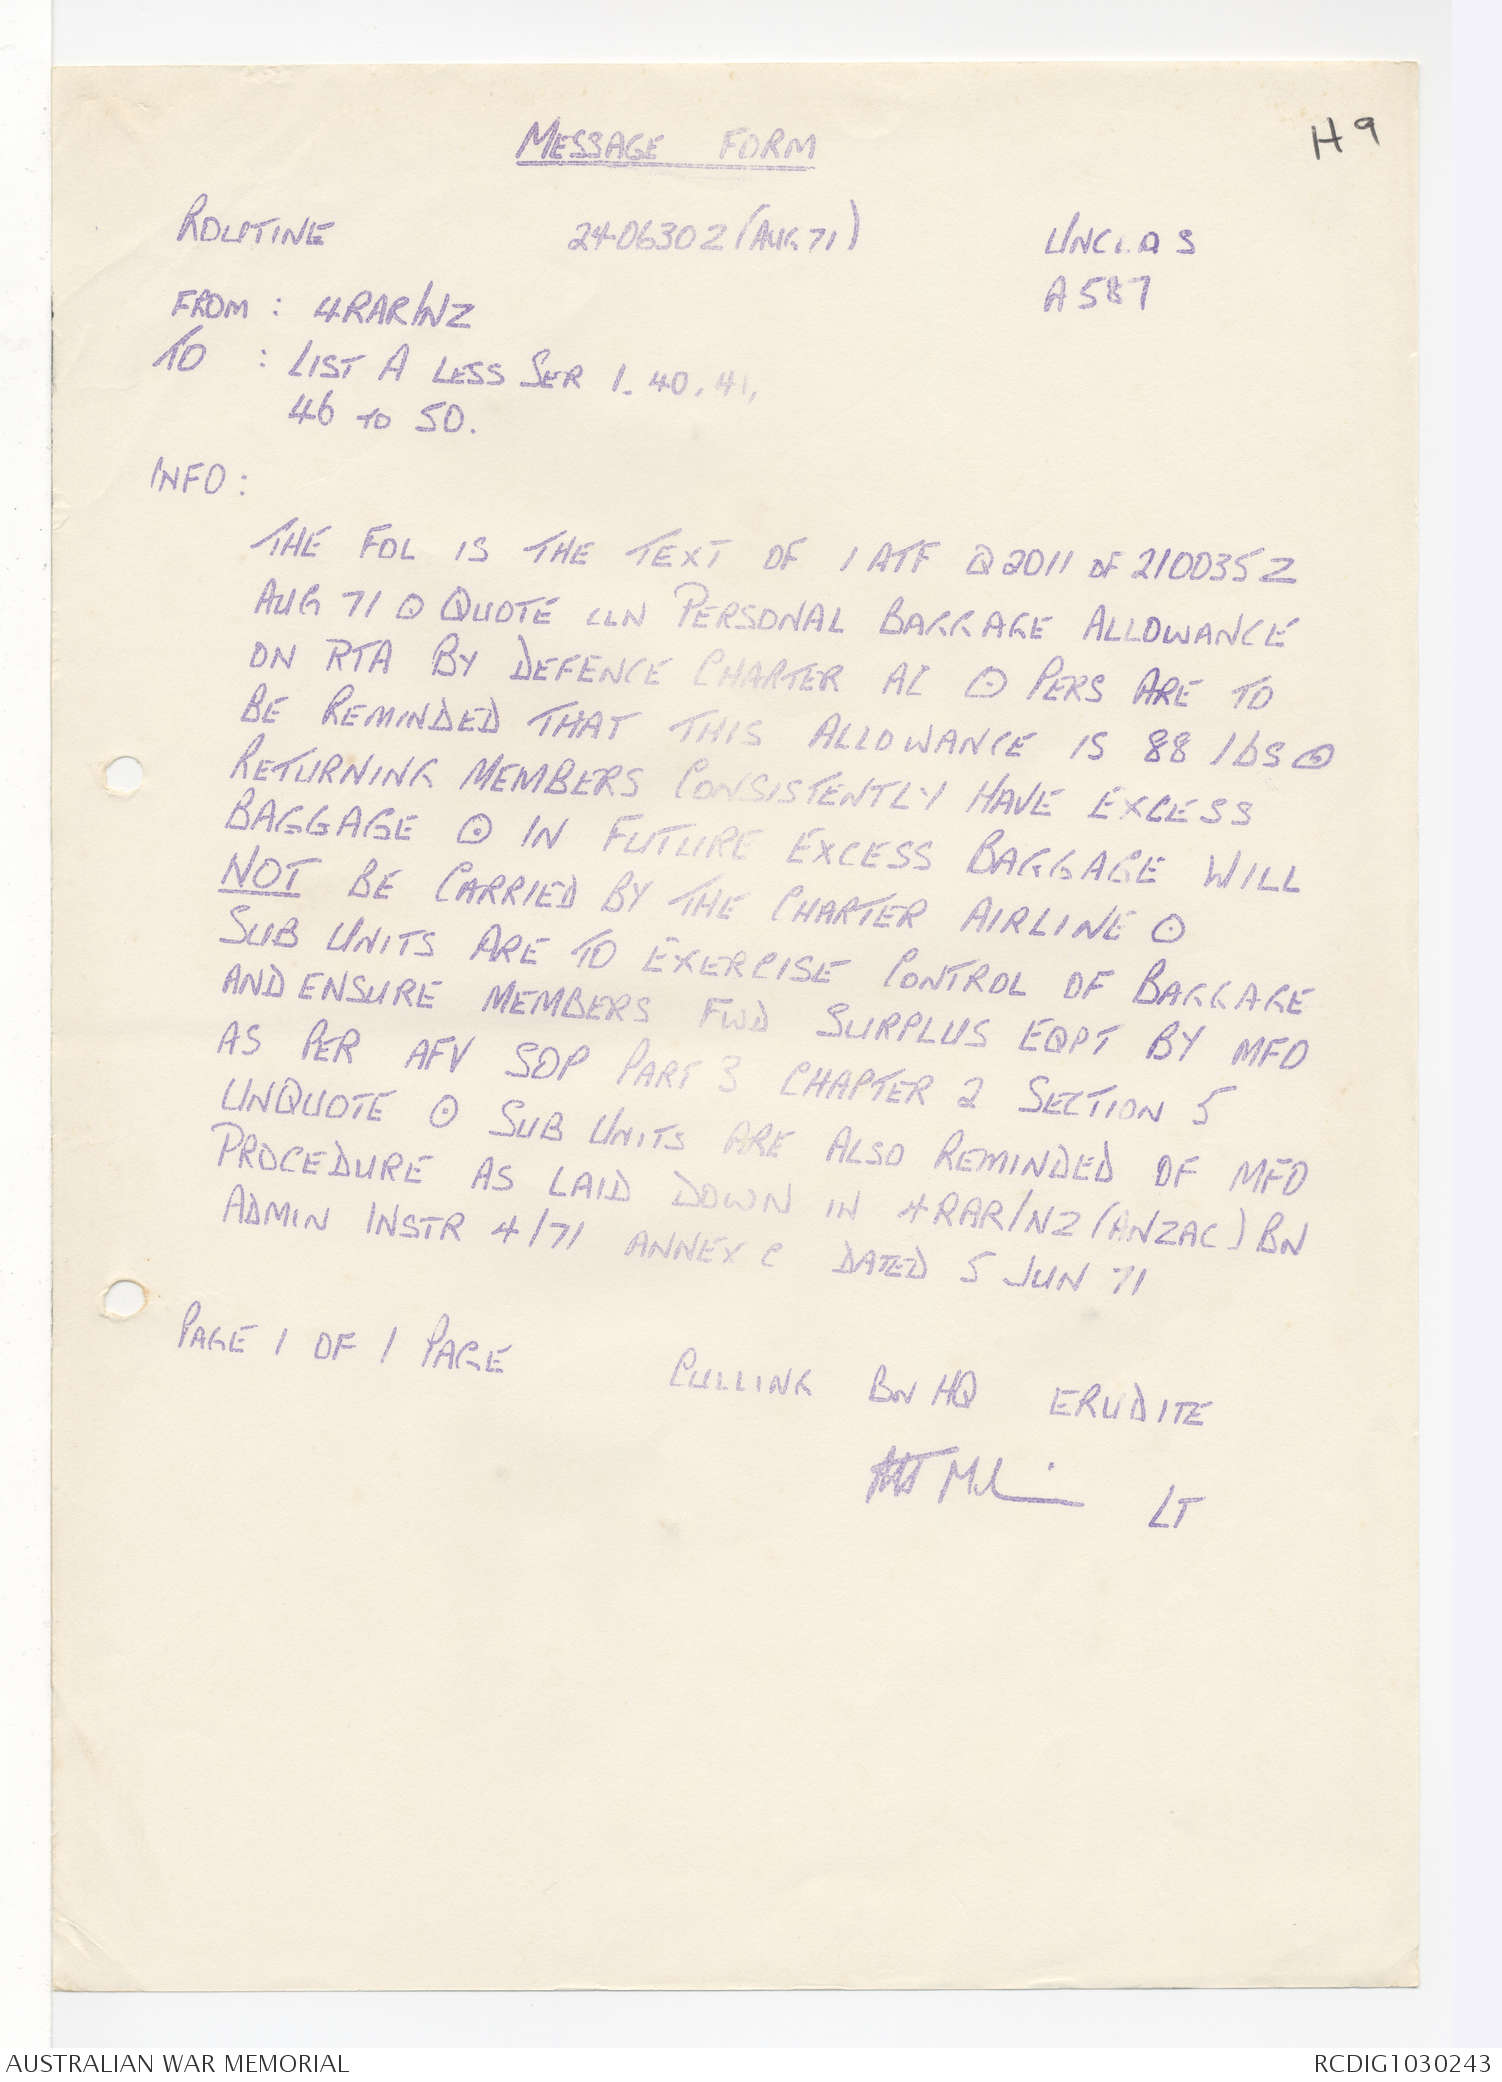 H 9
MESSAGE FORM
ROUTINE 240630Z (AUG 71) UNCLAS
A 587
FROM : 4RAR/NZ
TO : LIST A LESS SER 1. 40, 41,
46 TO 50.
INFO :
THE FOL IS THE TEXT OF 1 ATF Q 2011 OF 210035Z
AUG 71 ⊙ QUOTE CLN PERSONAL BAGGAGE ALLOWANCE
ON RTA BY DEFENCE CHARTER AC ⊙ PERS ARE TO
BE REMINDED THAT THIS ALLOWANCE IS 88 lbs ⊙
RETURNING MEMBERS CONSISTENTLY HAVE EXCESS
BAGGAGE ⊙ IN FUTURE EXCESS BAGGAGE WILL
NOT BE CARRIED BY THE CHARTER AIRLINE ⊙
SUB UNITS ARE TO EXERCISE CONTROL OF BAGGAGE
AND ENSURE MEMBERS FWD SURPLUS EQPT BY MFO
AS PER AFV SOP PART 3 CHAPTER 2 SECTION 5
UNQUOTE ⊙ SUB UNITS ARE ALSO REMINDED OF MFO
PROCEDURE AS LAID DOWN IN 4RAR/NZ (ANZAC) BN
ADMIN INSTR 4/71 ANNEX C DATED 5 JUN 71
PAGE 1 OF 1 PAGE CULLING BN HQ ERUDITE
LT
AUSTRALIAN WAR MEMORIAL RCDIG1030243